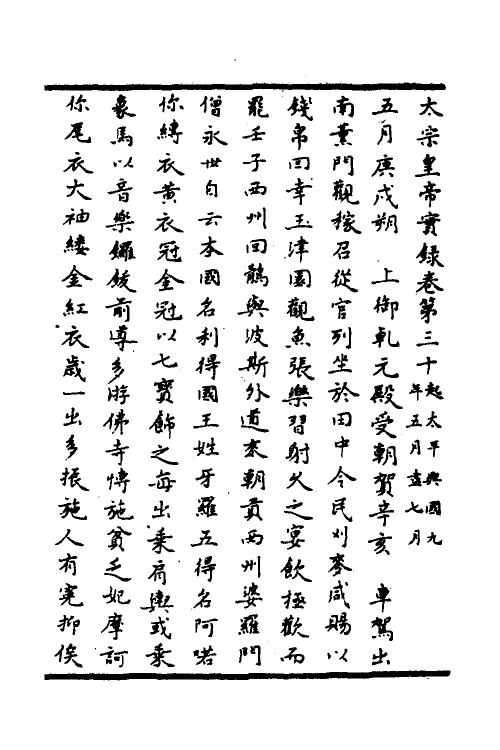 太宗皇帝實録卷第三十起太平興國九年五月盡七月
五月庚戌朔　上御乹元殿受朝賀辛亥　車駕出
南薫門觀稼召從官列坐於田中令民刈麥咸賜以
錢帛囘幸玉津園觀魚張樂習射久之宴飲極歡而
罷壬子西州囘鶻與波斯外道來朝貢西州婆羅門
僧永世自云本國名利得國王姓牙羅五得名阿喏
你縛衣黄衣冠金冠以七寳飾之每出乗肩輿或乗
象馬以音樂鑼鈸前導多游佛寺愽施貧乏妃摩訶
你尾衣大袖縷金紅衣歳一出多振施人有寃抑俟